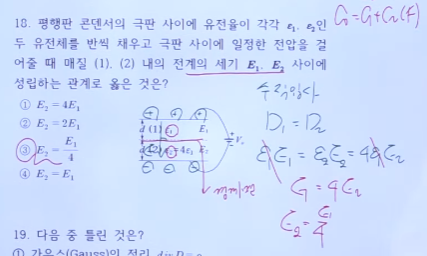 18. 평행판 콘덴서의 극판 사이에 유전율이 각각 ε₁, ε₂인
두 유전체를 반씩 채우고 극판 사이에 일정한 전압을 걸
어줄 때 매질 (1), (2) 내의 전계의 세기 E₁, E₂ 사이에
성립하는 관계로 옳은 것은?
① E₂ = 4E₁
② E₂ = 2E₁
③ E₂ = E₁/4
④ E₂ = E₁
d (1) ε₁ E₁
d (2) ε₂=4ε₁ E₂
V₀
경계면
D₁ = D₂
ε₁E₁ = ε₂E₂ = 4ε₁E₂
E₁ = 4E₂
E₂ = E₁/4
19. 다음 중 틀린 것은?
① 가우스(Gauss)의 정리